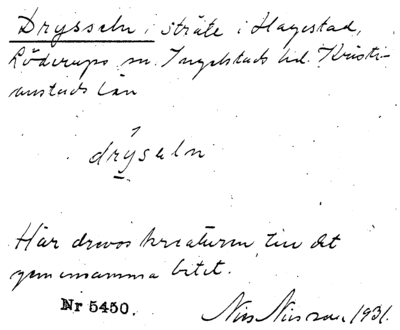 Drysseln i sträte i Hagestad,
Löderups sn. Ingelstads hd. Kristi-
anstads län
drýseln
Här drevos kreaturen till det
gemensamma betet.
Nr 5450. Nils Nilsson 1931.